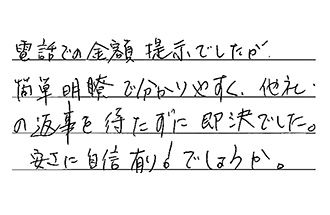 電話での金額提示でしたが、
簡単明瞭で分かりやすく、他社
の返事を待たずに即決でした。
安さに自信有り!でしょうか。